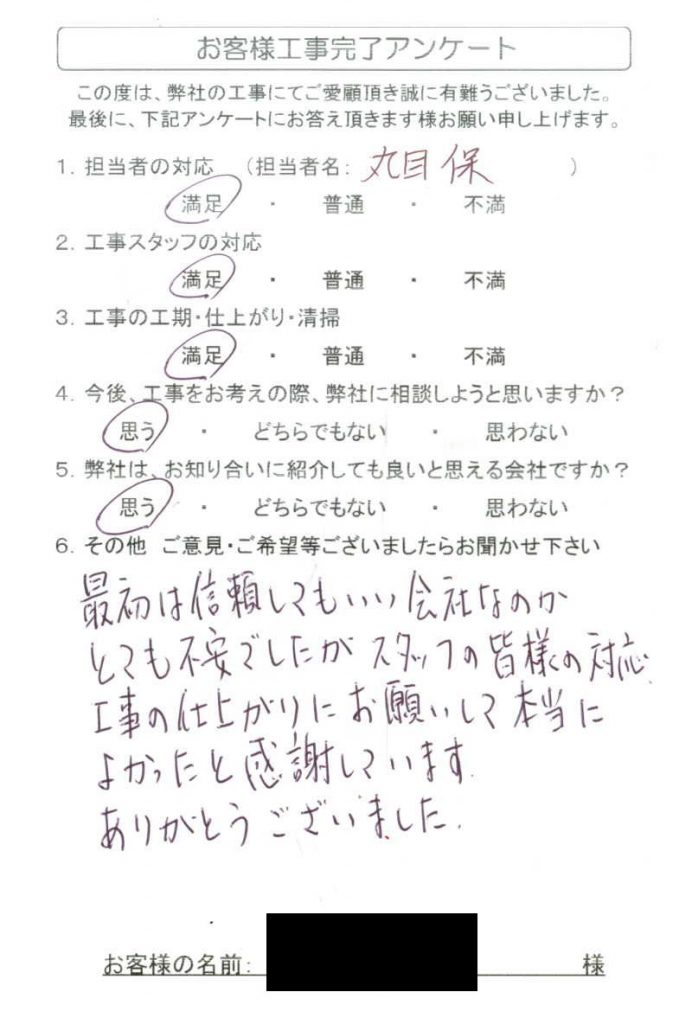 お客様工事完了アンケート
この度は、弊社の工事にてご愛顧頂き誠に有難うございました。
最後に、下記アンケートにお答え頂きます様お願い申し上げます。
1. 担当者の対応 (担当者名: 丸目 保 )
満足 ・ 普通 ・ 不満
2. 工事スタッフの対応
満足 ・ 普通 ・ 不満
3. 工事の工期・仕上がり・清掃
満足 ・ 普通 ・ 不満
4. 今後、工事をお考えの際、弊社に相談しようと思いますか?
思う ・ どちらでもない ・ 思わない
5. 弊社は、お知り合いに紹介しても良いと思える会社ですか?
思う ・ どちらでもない ・ 思わない
6. その他 ご意見・ご希望等ございましたらお聞かせ下さい
最初は信頼してもいい会社なのか
とても不安でしたが スタッフの皆様の対応
工事の仕上がりにお願いして本当に
よかったと感謝しています.
ありがとうございました.
お客様の名前: 様